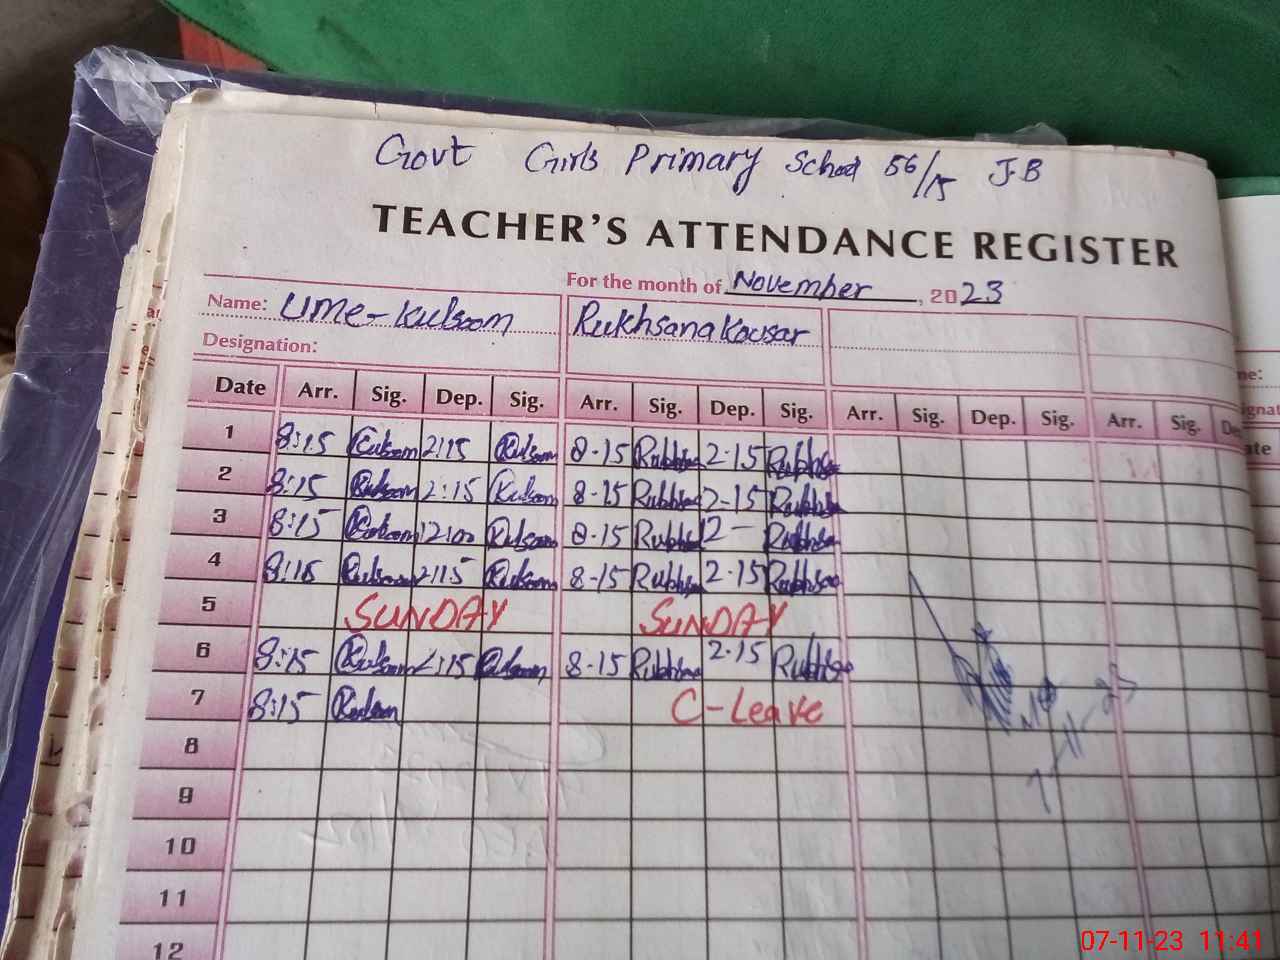 Govt Girls Primary School 56/15 J-B
TEACHER'S ATTENDANCE REGISTER
For the month of November, 2023
Name: Ume-Kulsoom Rukhsana Kousar
Designation:
Date Arr. Sig. Dep. Sig. Arr. Sig. Dep. Sig. Arr. Sig. Dep. Sig. Arr. Sig. De
1 8:15 Kulsoom 2:15 Kulsoom 8-15 Rukhsa 2-15 Rukhsa
2 8:15 Kulsoom 2:15 Kulsoom 8-15 Rukhsa 2-15 Rukhsa
3 8:15 Kulsoom 12:00 Kulsoom 8-15 Rukhsa 12 - Rukhsa
4 8:15 Kulsoom 2:15 Kulsoom 8-15 Rukhsa 2-15 Rukhsa
5 SUNDAY SUNDAY
6 8:15 Kulsoom 2:15 Kulsoom 8-15 Rukhsa 2-15 Rukhsa
7 8:15 Kulsoom C-Leave
8
9
10
11
12
7-11-23
07-11-23 11:41